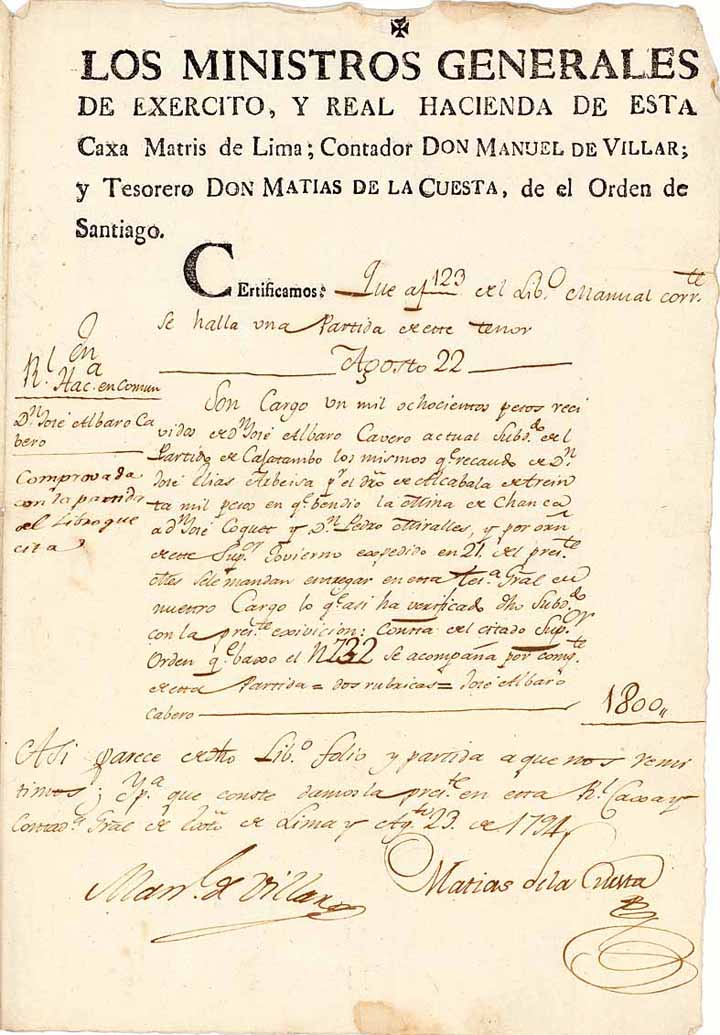 LOS MINISTROS GENERALES
DE EXERCITO, Y REAL HACIENDA DE ESTA
Caxa Matris de Lima; Contador DON MANUEL DE VILLAR;
y Tesorero DON MATIAS DE LA CUESTA, de el Orden de
Santiago.
CErtificamos: Que af 123 del Lib.º Manual corr.te
se halla una Partida de este tenor
Agosto 22
R.l Hac.da en Comun
D.n José Albaro Ca
bero
Comprovada
con la partida
del Libro que
cita
Son Cargo un mil ochocientos pesos reci
vidos de d.n José Albaro Cavero actual Subd.do del
Partido de Caxatambo los mismos q.e recaudo de D.n
José Elias Albeisa p.r el dro de Alcabala de trein
ta mil pesos en q.e bendio la Mina de Chanca
a d.n José Coquet y D.n Pedro Miralles, y por orn
de este Sup.or Govierno expedido en 21. del pres.te
Mes se le mandan entregar en esta Tes.a Gral de
nuestro Cargo lo q.e asi ha verificado dho Subd.do
con la pres.te exivicion: Consta del citado Sup.or
Orden q.e baxo el N 232 se acompaña por comp.te
de esta Partida = dos rubricas = José Albaro
Cabero
1800,,
Asi parece de dho Lib.º folio y partida a que nos remi
timos; Y p.a que conste damos la pres.te en esta R.l Caxa y
Contad.a Gral de Lima y Ag.to 23. de 1794
Man.l de Villar
Matias de la Cuesta